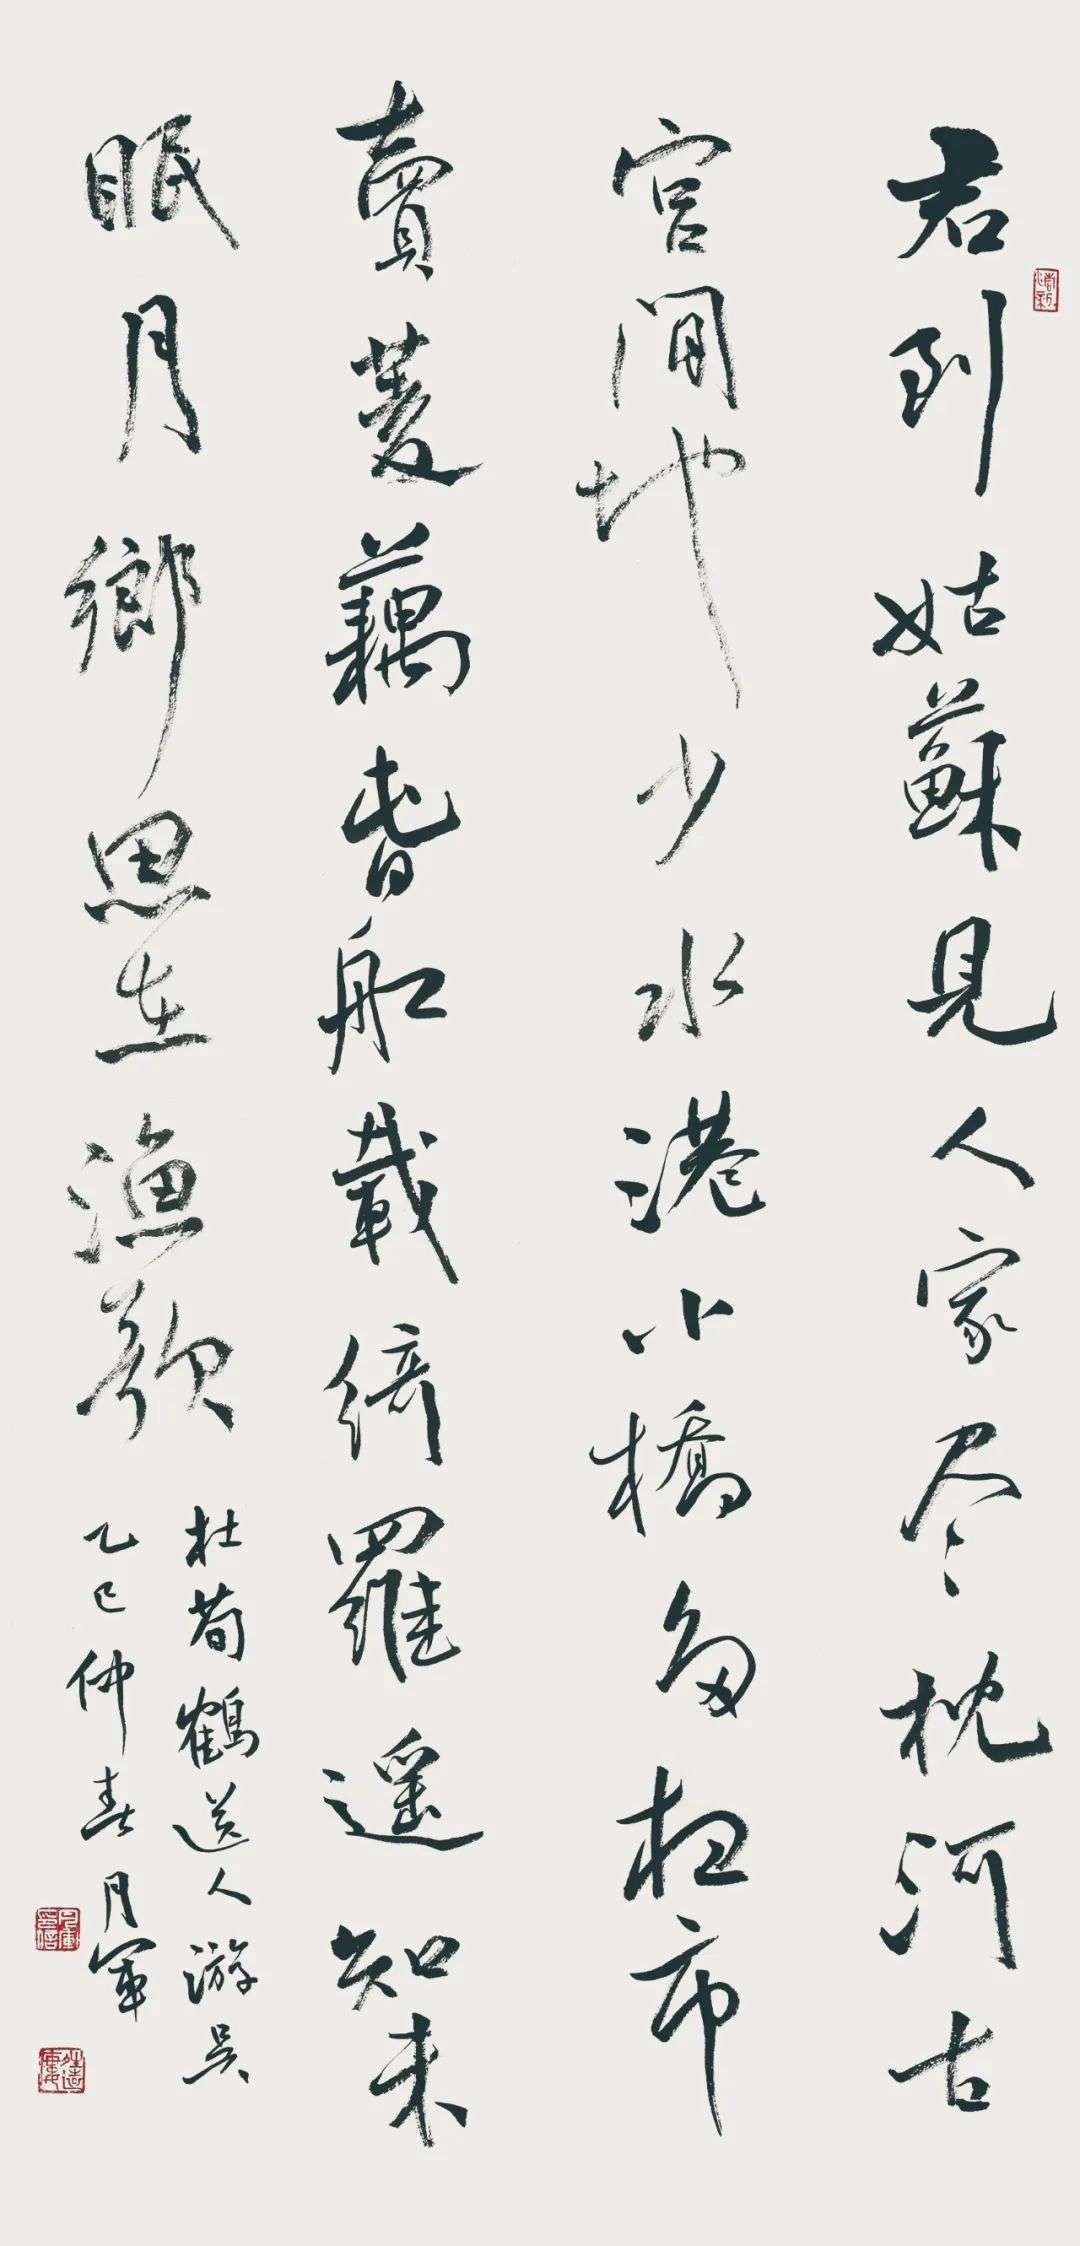 君到姑蘇見人家尽枕河古
宫閒地少水港小橋多夜市
賣菱藕春船載綺羅遥知未
眠月鄉思在漁歌
杜荀鶴送人游吴
乙巳仲春月軍